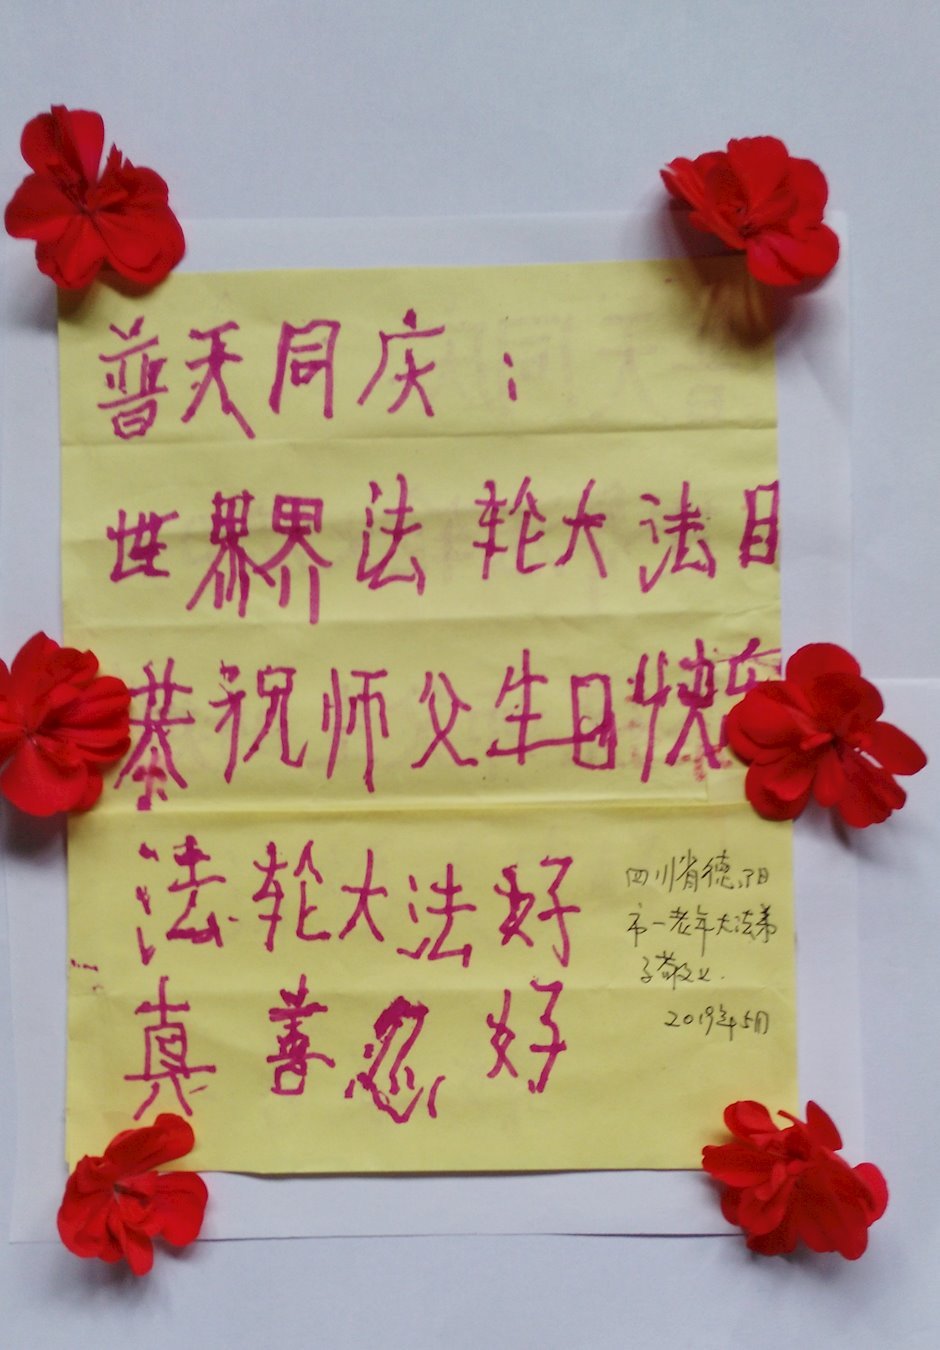 普天同庆：
世界界法轮大法日
恭祝师父生日快乐
法轮大法好
真善忍好
四川省德阳
市一老年大法弟
子敬上.
2019年5月